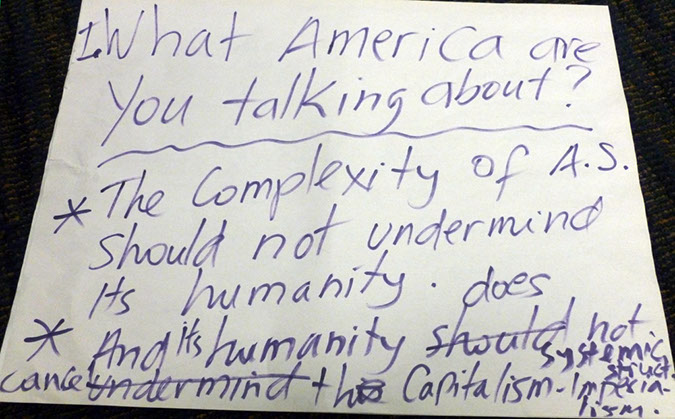 1. What America are
you talking about?
* The Complexity of A.S.
should not undermind
Its humanity. does
* And Its humanity should not
cancel undermind the Capitalism-Imperia-
lism.
systemic
struct.